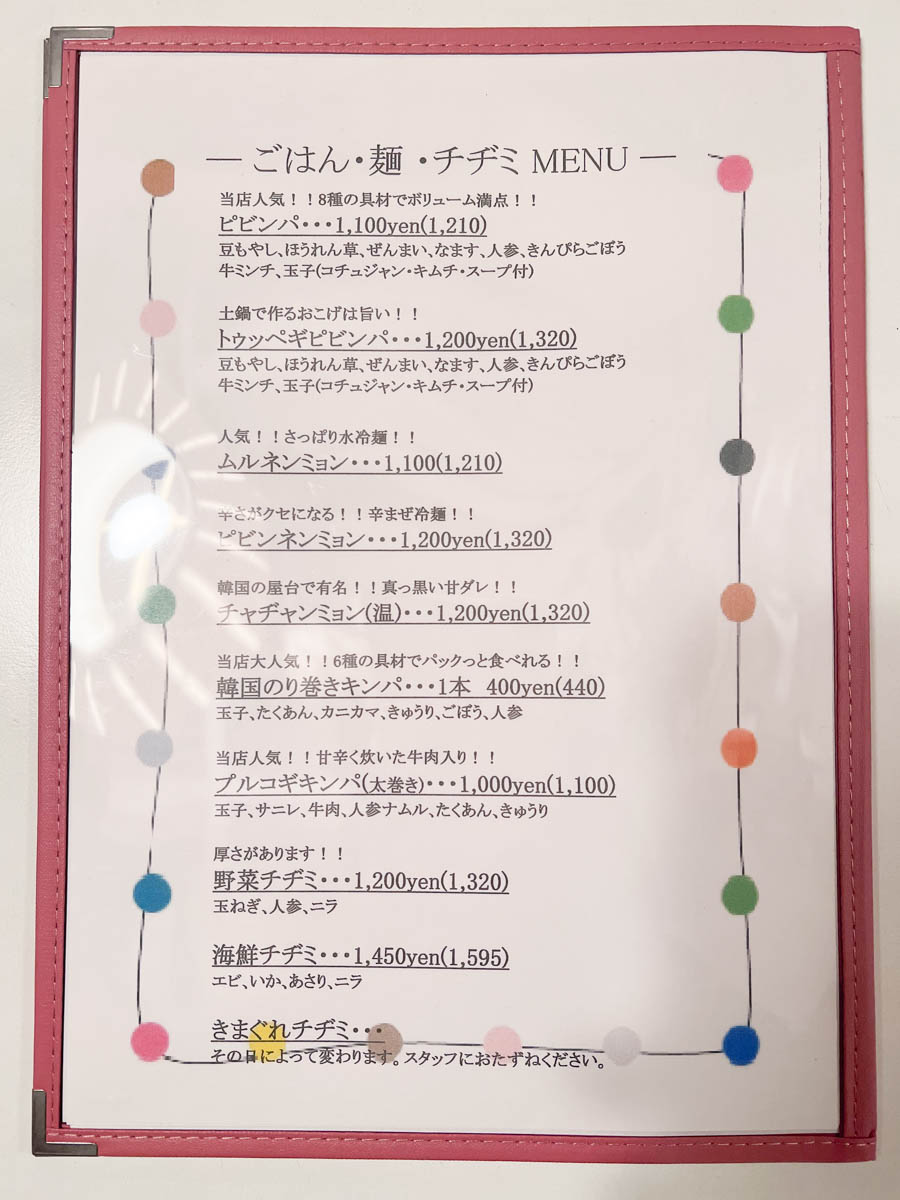 ― ごはん・麺 ・チヂミ MENU ―
当店人気！！8種の具材でボリューム満点！！
ピビンパ・・・1,100yen(1,210)
豆もやし、ほうれん草、ぜんまい、なます、人参、きんぴらごぼう
牛ミンチ、玉子(コチュジャン・キムチ・スープ付)
土鍋で作るおこげは旨い！！
トゥッペギピビンパ・・・1,200yen(1,320)
豆もやし、ほうれん草、ぜんまい、なます、人参、きんぴらごぼう
牛ミンチ、玉子(コチュジャン・キムチ・スープ付)
人気！！さっぱり水冷麺！！
ムルネンミョン・・・1,100(1,210)
辛さがクセになる！！辛まぜ冷麺！！
ピビンネンミョン・・・1,200yen(1,320)
韓国の屋台で有名！！真っ黒い甘ダレ！！
チャヂャンミョン(温)・・・1,200yen(1,320)
当店大人気！！6種の具材でパックっと食べれる！！
韓国のり巻きキンパ・・・1本 400yen(440)
玉子、たくあん、カニカマ、きゅうり、ごぼう、人参
当店人気！！甘辛く炊いた牛肉入り！！
プルコギキンパ(太巻き)・・・1,000yen(1,100)
玉子、サニレ、牛肉、人参ナムル、たくあん、きゅうり
厚さがあります！！
野菜チヂミ・・・1,200yen(1,320)
玉ねぎ、人参、ニラ
海鮮チヂミ・・・1,450yen(1,595)
エビ、いか、あさり、ニラ
きまぐれチヂミ・・・
その日によって変わります。スタッフにおたずねください。